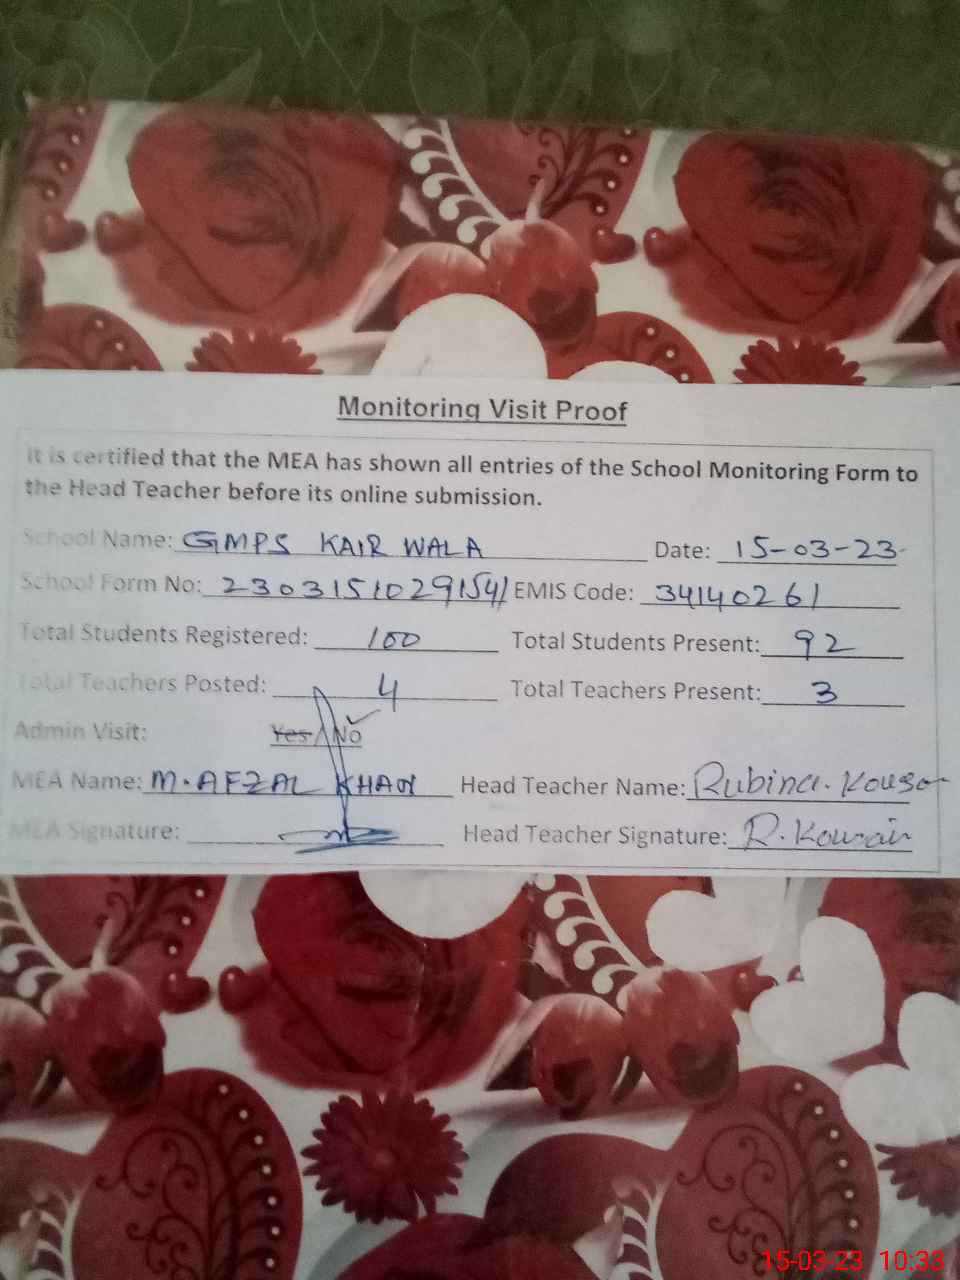 Monitoring Visit Proof
It is certified that the MEA has shown all entries of the School Monitoring Form to
the Head Teacher before its online submission.
School Name: GMPS KAIR WALA Date: 15-03-23
School Form No: 23031510291541 EMIS Code: 34140261
Total Students Registered: 100 Total Students Present: 92
Total Teachers Posted: 4 Total Teachers Present: 3
Admin Visit: Yes / No
MEA Name: M. AFZAL KHAN Head Teacher Name: Rubina. Kousar
MEA Signature: Head Teacher Signature: R. Kousar
15-03-23 10:33